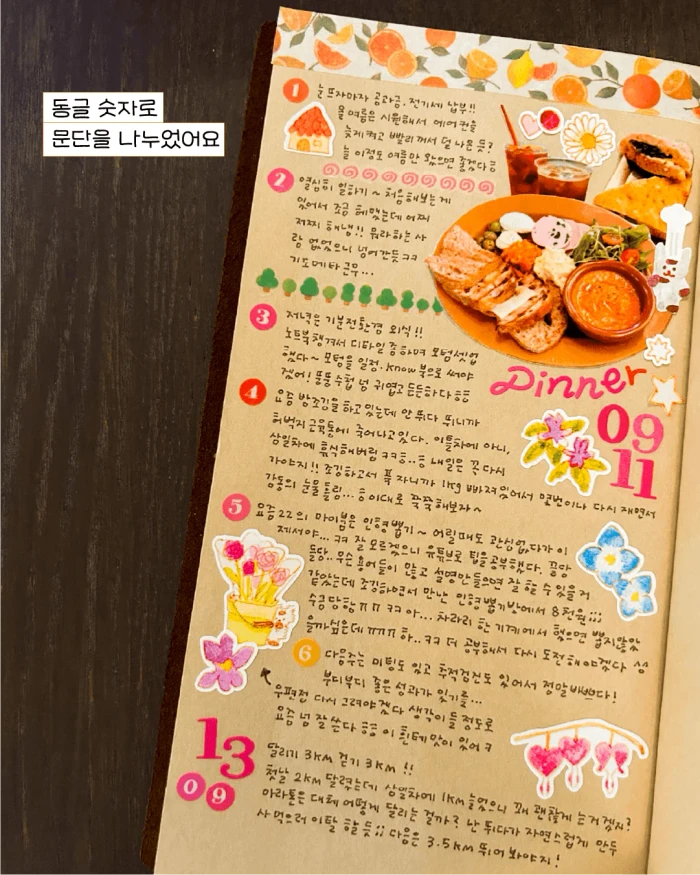 동글 숫자로
문단을 나누었어요
1
눈뜨자마자 공과금, 전기세 납부!!
올여름은 시원해서 에어컨을
늦게 켜고 빨리 꺼서 덜 나온 듯?
늘 이정도 여름만 왔으면 좋겠다ㅎ
2
열심히 일하기 ~ 처음해보는게
있어서 조금 헤맸는데 어찌
저찌 해냄!! 뭐라하는 사
람 없었으니 넘어간듯 ㅋㅋ
기도메타 근무...
3
저녁은 기분전환겸 외식!!
노트북 챙겨서 디타일 중 하며 모텀셋업
했다~ 모텀을 일정, know북으로 써야
겠어! 뚱뚱수첩 넘 귀엽고 든든하다 ㅎㅎ
Dinner
09
11
4
요즘 밤조깅을 하고 있는데 안 뛰다 뛰니까
허벅지 근육통에 죽어나고있다. 이틀차에 아니,
삼일차에 휴식해버림 ㅋㅋㅎ..ㅎ 내일은 꼭 다시
가야지!! 조깅하고서 푹 자니까 1kg 빠져있어서 몇번이나 다시 재면서
감동의 눈물흘림... ㅎ 이대로 쭉쭉해보자~
5
요즘 22의 마이붐은 인형뽑기 ~ 어릴때도 관심없다가 이
제서야... ㅋㅋ 잘 모르겠으니 유튜브로 팁을 공부했다. 끌망
들망.. 무슨 용어들이 많고 설명만 들으면 잘 할 수 있을거
같았는데 조깅하면서 만난 인형뽑기방에서 8천원;;;
수금당함 ㅠㅠ ㅋㅋ 아... 차라리 한 기계에서 했으면 뽑지않았
을까싶은데 ㅠㅠㅠ 하.. ㅋㅋ 더 공부해서 다시 도전해야겠다
6
다음주는 미팅도 있고 추적검진도 있어서 정말 바쁘다!
부디부디 좋은 성과가 있기를...
우편점 다시 그려야겠다 생각이 들 정도로
요즘 넘 잘 쓴다 ㅎㅎ 이 흰테 맛이 있어 ㅋ
13
09
달리기 3KM 걷기 3KM !!
첫날 2KM 달렸는데 삼일차에 1KM 늘었으니 꽤 괜찮게 는거겠지?
마라톤은 대체 어떻게 달리는 걸까? 난 뛰다가 자연스럽게 만두
사먹으러 이탈 할 듯;; 다음은 3.5KM 뛰어 봐야지!